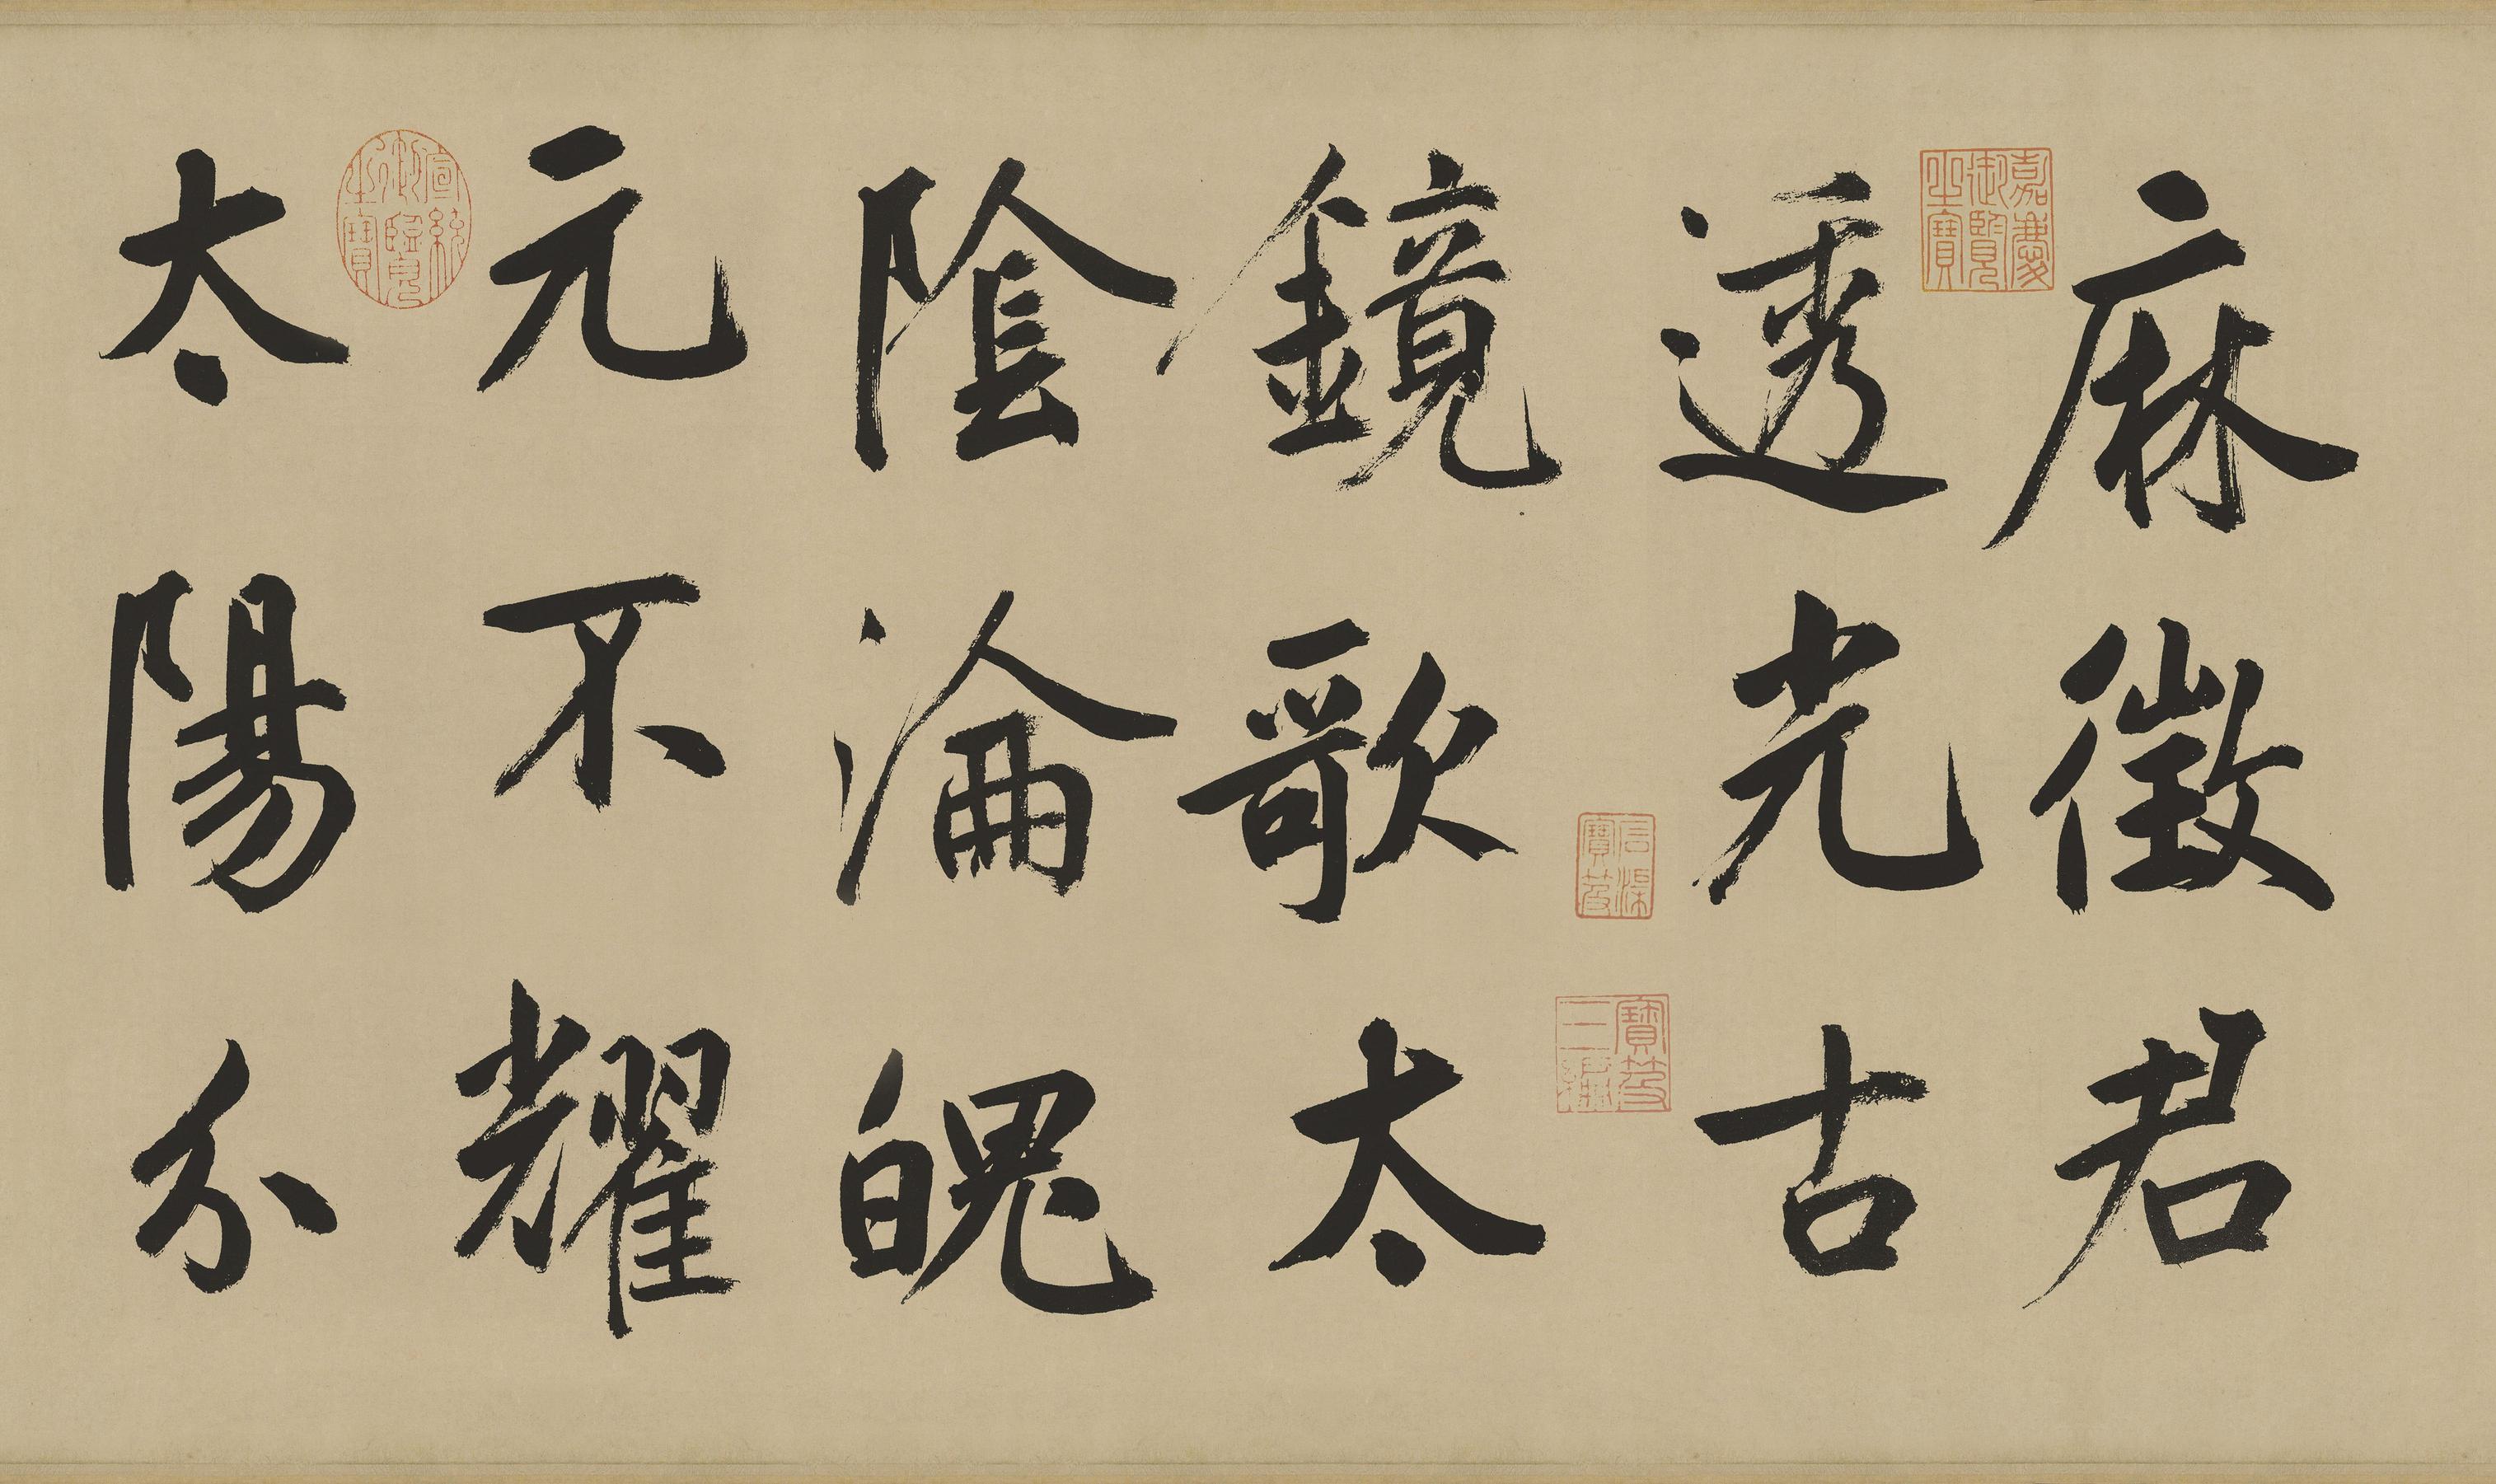 麻徵君
透光古
鏡歌太
陰淪魄
元不耀
太陽分
嘉慶御覽之寶
石渠寶笈
寶笈三編
宣統御覽之寶